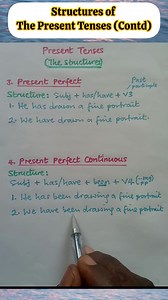 Structures of
The Present Tenses (Contd)
Present Tenses
(The Structures)
3. Present Perfect
Past
participle
Structure: Subj + has/have + V3
1. He has drawn a fine portrait
2. We have drawn a fine portrait.
4. Present Perfect Continuous
Structure:
Subj + has/have + been + V4 (-ing)
1. He has been drawing a fine portrait
2. We have been drawing a fine portrait